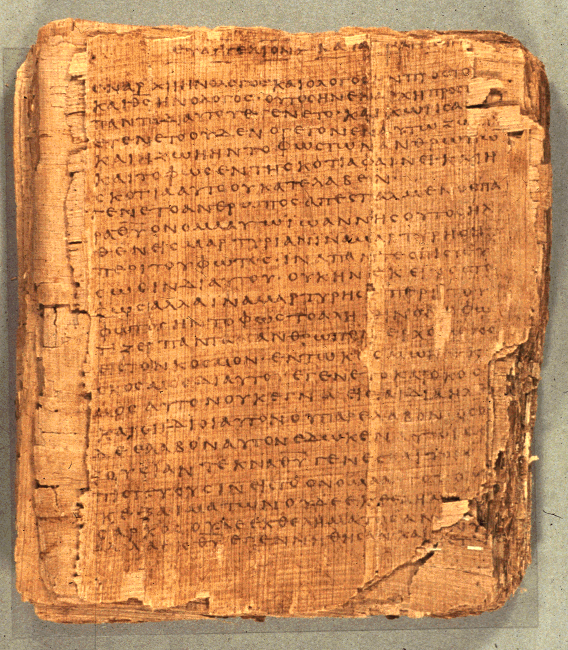 ΕΥΑΓΓΕΛΙΟΝ ΚΑΤΑ
ΕΝΑΡΧΗΗΝΟΛΟΓΟΣΚΑΙΟΛΟΓΟΣΗΝΠΡΟΣΤΟ
ΚΑΙΘΣΗΝΟΛΟΓΟΣ·ΟΥΤΟΣΗΝΕΝΑΡΧΗΠΡΟΣ
ΠΑΝΤΑΔΙΑΥΤΟΥΕΓΕΝΕΤΟ·ΚΑΙΧΩΡΙΣΑΥ
ΕΓΕΝΕΤΟΟΥΔΕΝΟΓΕΓΟΝΕΝΕΝΑΥΤΩΖΩ
ΚΑΙΗΖΩΗΗΝΤΟΦΩΣΤΩΝΑΝΘΡΩΠΩ
ΚΑΙΤΟΦΩΣΕΝΤΗΣΚΟΤΙΑΦΑΙΝΕΙΚΑΙΗ
ΣΚΟΤΙΑΑΥΤΟΟΥΚΑΤΕΛΑΒΕΝ
ΓΕΝΕΤΟΑΝΘΡΩΠΟΣΑΠΕΣΤΑΛΜΕΝΟΣΠΑ
ΡΑΘΥΟΝΟΜΑΑΥΤΩΙΩΑΝΝΗΣΟΥΤΟΣΗΛ
ΘΕΝΕΙΣΜΑΡΤΥΡΙΑΝΙΝΑΜΑΡΤΥΡΗΣΗ
ΠΕΡΙΤΟΥΦΩΤΟΣ·ΙΝΑΠΑΝΤΕΣΠΙΣΤΕΥ
ΣΩΣΙΝΔΙΑΥΤΟΥ·ΟΥΚΗΝΕΚΕΙΝΟΣΤΟ
ΦΩΣΑΛΛΑΙΝΑΜΑΡΤΥΡΗΣΗΠΕΡΙΤΟΥ
ΦΩΤΟΣΗΝΤΟΦΩΣΤΟΑΛΗΘΙΝΟΝΟΦΩ
ΤΙΖΕΙΠΑΝΤΑΑΝΘΡΩΠΟΝΕΡΧΟΜΕΝΟΝ
ΕΙΣΤΟΝΚΟΣΜΟΝ·ΕΝΤΩΚΟΣΜΩΗΝ
ΣΜΟΣΔΙΑΥΤΟΥΕΓΕΝΕΤΟΚΑΙΟΚΟΣ
ΜΟΣΑΥΤΟΝΟΥΚΕΓΝΩΕΙΣΤΑΙΔΙΑΗΛ
ΚΑΙΟΙΙΔΙΟΙΑΥΤΟΝΟΥΠΑΡΕΛΑΒΟΝ·ΟΣΟΙ
ΔΕΕΛΑΒΟΝΑΥΤΟΝΕΔΩΚΕΝΑΥΤΟΙΣΕ
ΞΟΥΣΙΑΝΤΕΚΝΑΘΥΓΕΝΕΣΘΑΙΤΟΙΣ
ΠΙΣΤΕΥΟΥΣΙΝΕΙΣΤΟΟΝΟΜΑΑΥΤΟΥΟΙ
ΟΥΚΕΞΑΙΜΑΤΩΝΟΥΔΕΕΚΘΕΛΗΜΑ
ΣΑΡΚΟΣΟΥΔΕΕΚΘΕΛΗΜΑΤΟΣΑΝ
ΑΛΛΑΕΚΘΥΕΓΕΝΝΗΘΗΣΑΝΚΑΙ